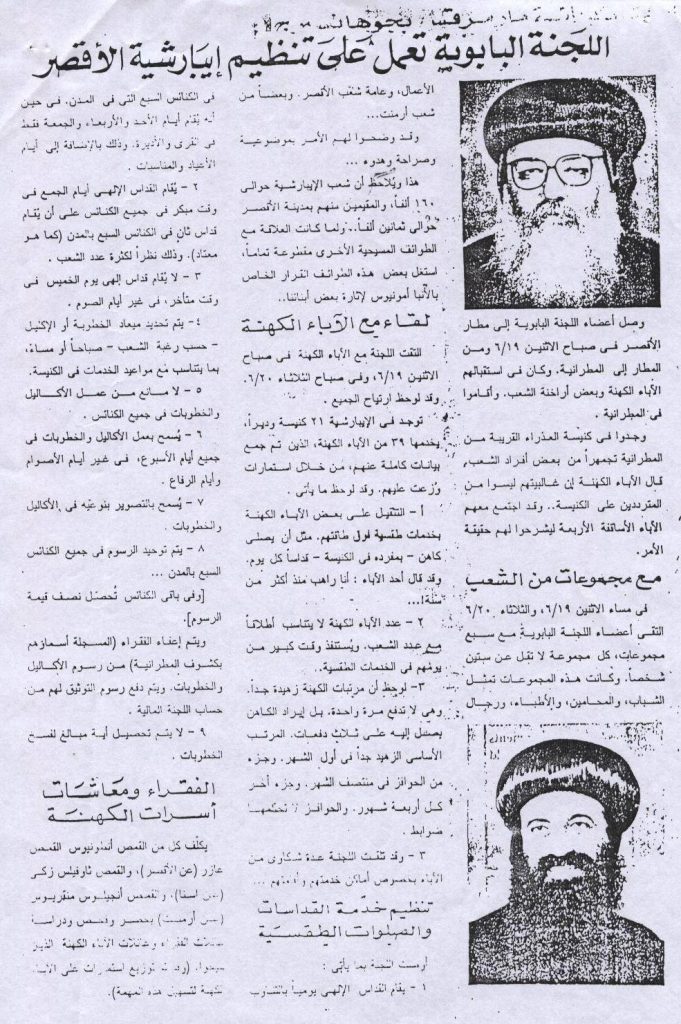 اللجنة البابوية تعمل على تنظيم إيبارشية الأقصر
وصل أعضاء اللجنة البابوية إلى مطار
الأقصر فى صباح الاثنين ٦/١٩ ومن
المطار إلى المطرانية. وكان فى استقبالهم
الآباء الكهنة وبعض أراخنة الشعب. وأقاموا
فى المطرانية.
وجدوا فى كنيسة العذراء القريبة من
المطرانية تجمهراً من بعض أفراد الشعب،
قال الآباء الكهنة إن غالبيتهم ليسوا من
المترددين على الكنيسة.. وقد اجتمع معهم
الآباء الأساقفة الأربعة ليشرحوا لهم حقيقة
الأمر.
مع مجموعات من الشعب
فى مساء الاثنين ٦/١٩، والثلاثاء ٦/٢٠
التقى أعضاء اللجنة البابوية مع سبع
مجموعات، كل مجموعة لا تقل عن ستين
شخصاً. وكانت هذه المجموعات تمثل
الشباب، والمحامين، والأطباء، ورجال
الأعمال، وعامة شعب الأقصر. وبعضاً من
شعب أرمنت...
وقد وضحوا لهم الأمر بموضوعية
وصراحة وهدوء ...
هذا ويُلاحظ أن شعب الإيبارشية حوالى
١٦٠ ألفاً، والمقيمين منهم بمدينة الأقصر
حوالى ثمانين ألفاً.. ولما كانت العلاقة مع
الطوائف المسيحية الأخرى مقطوعة تماماً،
استغل بعض هذه الطوائف القرار الخاص
بالأنبا أمونيوس لإثارة بعض أبنائنا..
لقاء مع الآباء الكهنة
التقت اللجنة مع الآباء الكهنة فى صباح
الاثنين ٦/١٩، وفى صباح الثلاثاء ٦/٢٠.
وقد لوحظ ارتياح الجميع.
توجد فى الإيبارشية ٢١ كنيسة وديراً،
يخدمها ٣٩ من الآباء الكهنة، الذين تم جمع
بيانات كاملة عنهم، من خلال استمارات
وُزعت عليهم. وقد لوحظ ما يأتى :
أ - التثقيل على بعض الآباء الكهنة
بخدمات طقسية فوق طاقتهم. مثل أن يصلى
كاهن - بمفرده فى الكنيسة - قداساً كل يوم.
وقد قال أحد الآباء : أنا راهب منذ أكثر من
سنة!...
٢ - عدد الآباء الكهنة لا يتناسب أطلاقاً
مع عدد الشعب. ويُستنفذ وقت كبير من
يومهم فى الخدمات الطقسية..
٣- لوحظ أن مرتبات الكهنة زهيدة جداً.
وهى لا تدفع مرة واحدة. بل إيراد الكاهن
يصل إليه على ثلاث دفعات. المرتب
الأساسى الزهيد جداً فى أول الشهر. وجزء
من الحوافز فى منتصف الشهر. وجزء أخر
كل أربعة شهور. والحوافز لا تحكمها
ضوابط.
٣ - وقد تلقت اللجنة عدة شكاوى من
الآباء بخصوص أماكن خدمتهم وأقدمتهم ...
تنظيم خدمة القداسات
والصلوات الطقسية
أوصت اللجنة بما يأتى :
١ - يقام القداس الإلهى يومياً بالتناوب
فى الكنائس السبع التى فى المدن. فى حين
أنه يُقام أيام الأحد والأربعاء والجمعة فقط
فى القرى والأديرة. وذلك بالإضافة إلى أيام
الأعياد والمناسبات.
٢ - يُقام القداس الإلهى أيام الجمع فى
وقت مبكر فى جميع الكنائس على أن يُقام
قداس ثان فى الكنائس السبع بالمدن (كما هو
معتاد). وذلك نظراً لكثرة عدد الشعب.
٣ - لا يُقام قداس إلهى يوم الخميس فى
وقت متأخر، فى غير أيام الصوم.
٤- يتم تحديد ميعاد الخطوبة أو الإكليل
- حسب رغبة الشعب - صباحاً أو مساءً،
بما يتناسب مع مواعيد الخدمات فى الكنيسة.
٥ - لا مانع من عمل الأكاليل
والخطوبات فى جميع الكنائس.
٦ - يُسمح بعمل الأكاليل والخطوبات فى
جميع أيام الأسبوع، فى غير أيام الأصوام
وأيام الرفاع.
٧ - يُسمح بالتصوير بنوعيه فى الأكاليل
والخطوبات.
٨ - يتم توحيد الرسوم فى جميع الكنائس
السبع بالمدن ...
[وفى باقى الكنائس تُحصل نصف قيمة
الرسوم].
ويتم إعفاء الفقراء (المسجلة أسماؤهم
بكشوف المطرانية) من رسوم الأكاليل
والخطوبات. ويتم دفع رسوم التوثيق لهم من
حساب اللجنة المالية.
٩ - لا يتم تحصيل أية مبالغ لفسخ
الخطوبات.
الفقراء ومعاشات
أسرات الكهنة
يكلف كل من القمص أنطونيوس القمص
عازر (عن الأقصر)، والقمص ثاوفيلس زكى
(عن اسنا)، والقمص أنجيلوس منقريوس
(عن أرمنت) بحصر وفحص ودراسة
الفقراء وعائلات الآباء الكهنة الذين
توزيع استمارات على الآباء
الكهنة لتسهيل هذه المهمة).